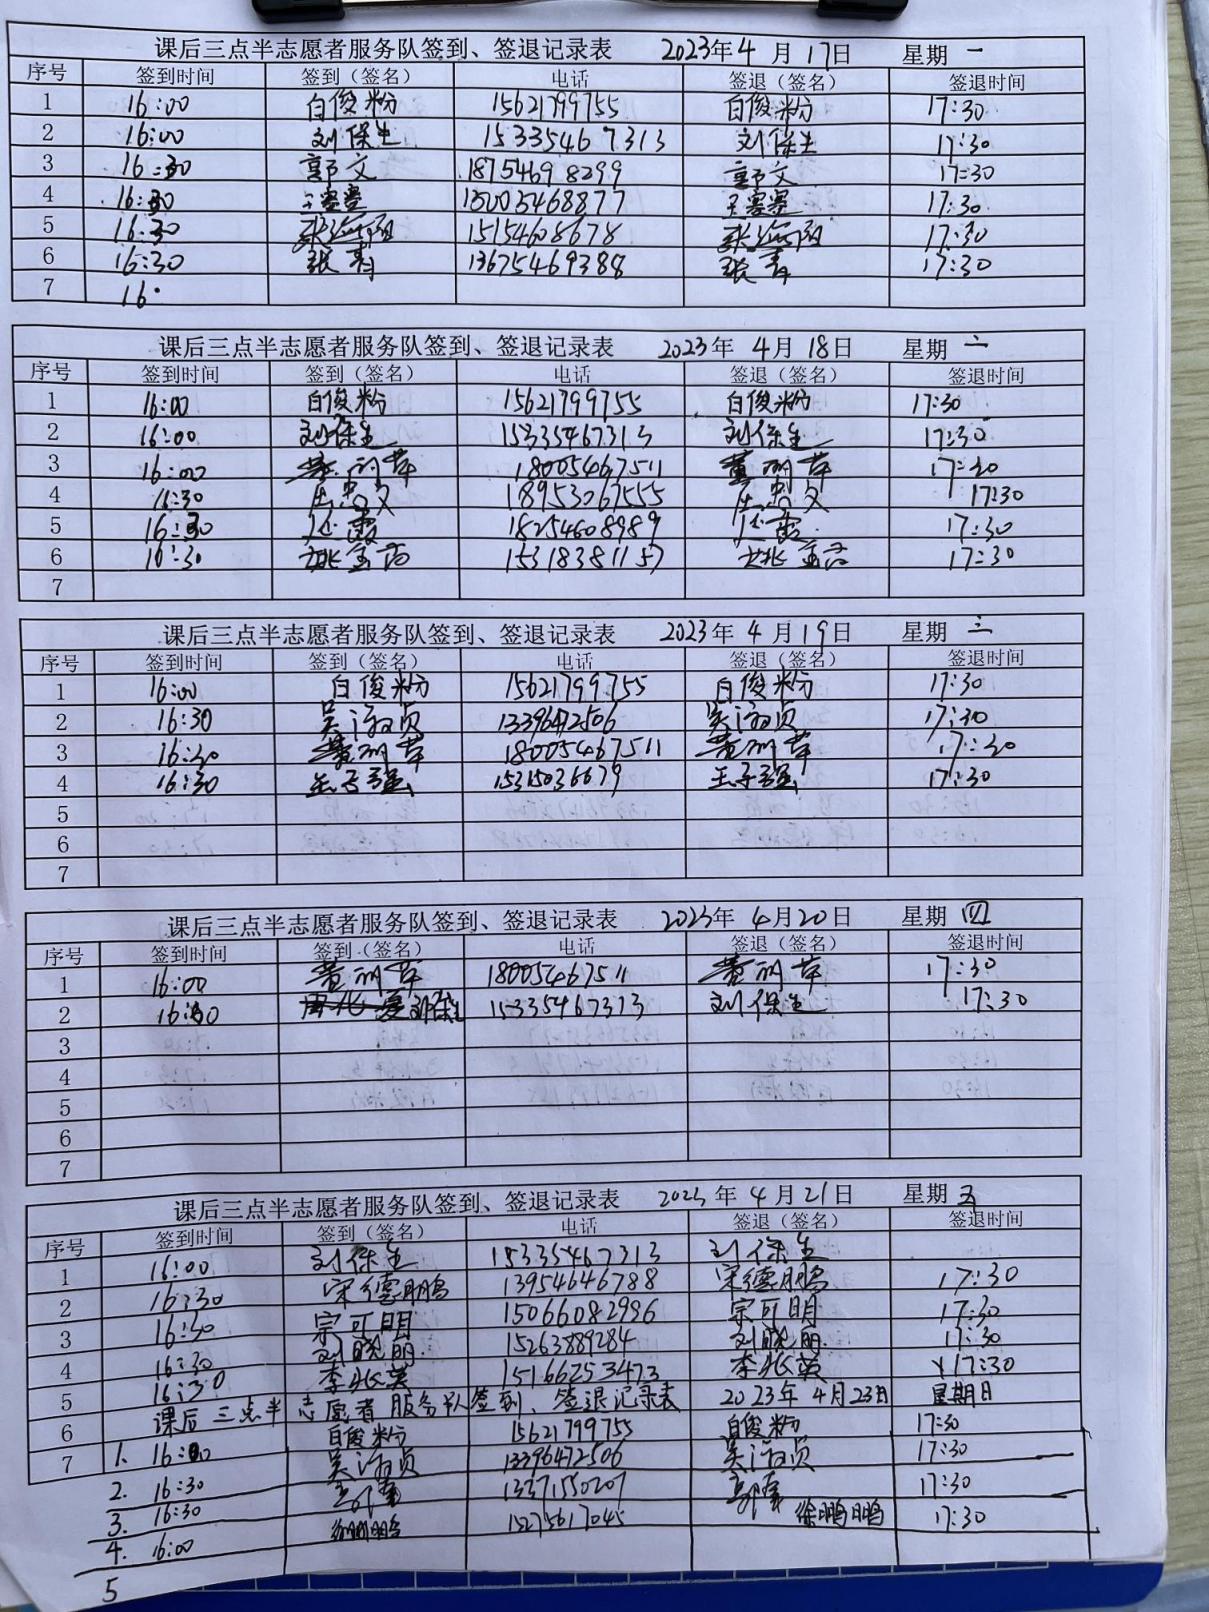 课后三点半志愿者服务队签到、签退记录表 2023年4月17日 星期一
序号 签到时间 签到（签名） 电话 签退（签名） 签退时间
1 16:00 白俊粉 15621799755 白俊粉 17:30
2 16:00 刘保生 15335467313 刘保生 17:30
3 16:30 郭文 18754698299 郭文 17:30
4 16:30 王赛赛 15005468877 王赛赛 17:30
5 16:30 15154608678 17:30
6 16:30 张青 13675469388 张青 17:30
7 16:
课后三点半志愿者服务队签到、签退记录表 2023年4月18日 星期二
序号 签到时间 签到（签名） 电话 签退（签名） 签退时间
1 16:00 白俊粉 15621799755 白俊粉 17:30
2 16:00 刘保生 15335467313 刘保生 17:30
3 16:00 董丽苹 18005467511 董丽苹 17:30
4 16:30 18953067555 17:30
5 16:30 18254608989 17:30
6 16:30 15318381157 17:30
7
课后三点半志愿者服务队签到、签退记录表 2023年4月19日 星期三
序号 签到时间 签到（签名） 电话 签退（签名） 签退时间
1 16:00 白俊粉 15621799755 白俊粉 17:30
2 16:30 吴海贞 13396472506 吴海贞 17:30
3 16:30 董丽苹 18005467511 董丽苹 17:30
4 16:30 王子强 15315036679 王子强 17:30
5
6
7
课后三点半志愿者服务队签到、签退记录表 2023年4月20日 星期四
序号 签到时间 签到（签名） 电话 签退（签名） 签退时间
1 16:00 董丽苹 18005467511 董丽苹 17:30
2 16:00 刘保生 15335467313 刘保生 17:30
3
4
5
6
7
课后三点半志愿者服务队签到、签退记录表 2023年4月21日 星期五
序号 签到时间 签到（签名） 电话 签退（签名） 签退时间
1 16:00 刘保生 15335467313 刘保生
2 16:30 宋德鹏 13954646788 宋德鹏 17:30
3 16:30 宗可明 15066082996 宗可明 17:30
4 16:30 刘晓丽 15263889284 刘晓丽 17:30
5 16:30 李兆英 15166253473 李兆英 17:30
6 课后三点半志愿者服务队签到、签退记录表 2023年4月23日 星期日
7 1. 16:00 白俊粉 15621799755 白俊粉 17:30
2. 16:30 吴海贞 13396472506 吴海贞 17:30
3. 16:30 13371550207 17:30
4. 16:00 徐鹏鹏 15275617045 徐鹏鹏 17:30
5